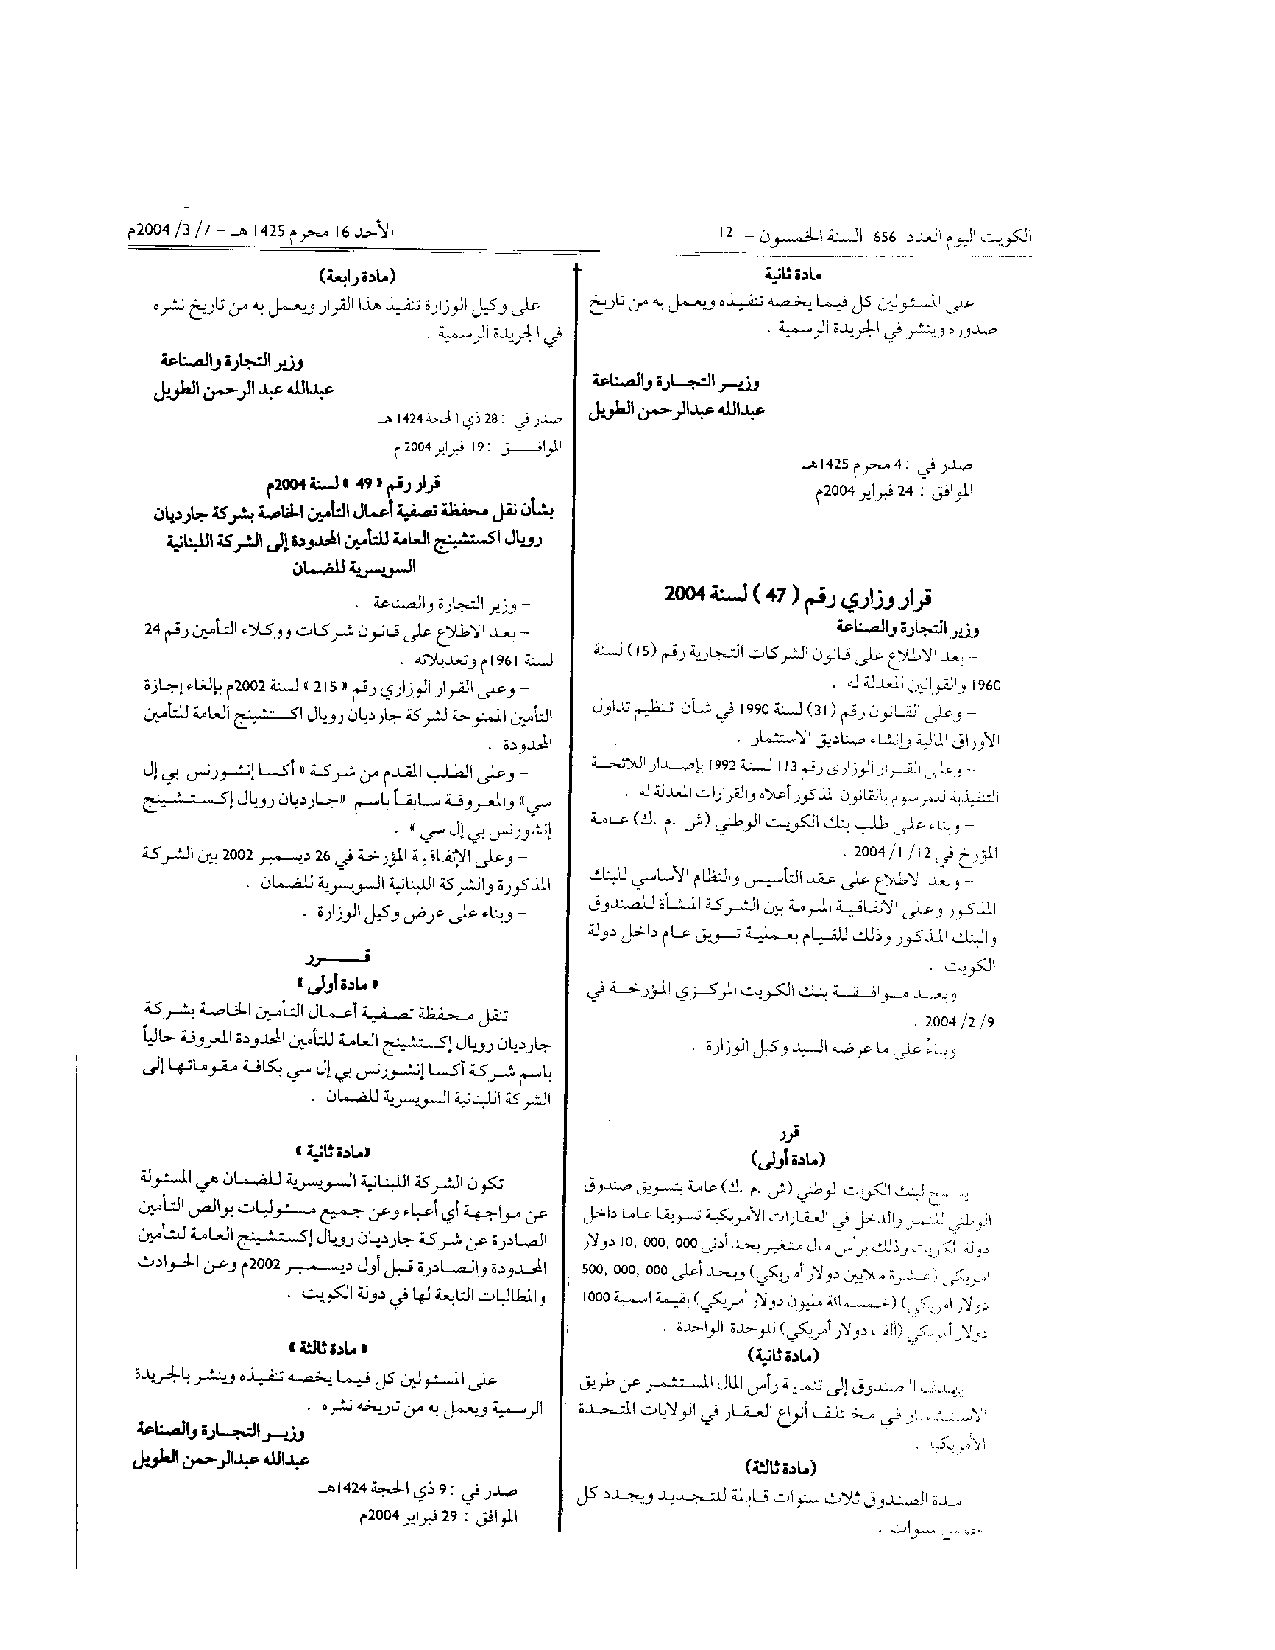 الكويت اليوم العدد 656 السنة الخمسون – 12
الأحد 16 محرم 1425 هـ – 7 / 3 / 2004م
مادة ثانية
على المسئولين كل فيما يخصه تنفيذه ويعمل به من تاريخ
صدوره وينشر في الجريدة الرسمية .
وزيـر التجـارة والصناعة
عبدالله عبدالرحمن الطويل
صدر في : 4 محرم 1425هـ
الموافق : 24 فبراير 2004م
قرار وزاري رقم ( 47 ) لسنة 2004
وزير التجارة والصناعة
– بعد الاطلاع على قانون الشركات التجارية رقم (15) لسنة
1960 والقوانين المعدلة له .
– وعلى القانون رقم (31) لسنة 1990 في شأن تنظيم تداول
الأوراق المالية وإنشاء صناديق الاستثمار .
– وعلى القرار الوزاري رقم 113 لسنة 1992 بإصدار اللائحة
التنفيذية للمرسوم بالقانون المذكور أعلاه والقرارات المعدلة له .
– وبناء على طلب بنك الكويت الوطني (ش . م . ك) عامة
المؤرخ في 12 / 1 / 2004 .
– وبعد الاطلاع على عقد التأسيس والنظام الأساسي للبنك
المذكور وعلى الاتفاقية المبرمة بين الشركة المنشأة للصندوق
والبنك المذكور وذلك للقيام بعملية تسويق عام داخل دولة
الكويت .
وبعد موافقة بنك الكويت المركزي المؤرخة في
9 / 2 / 2004 .
وبناءً على ما عرضه السيد وكيل الوزارة .
قرر
(مادة أولى)
يسمح لبنك الكويت الوطني (ش . م . ك) عامة بتسويق صندوق
الوطني للنمو والدخل في العقارات الأمريكية تسويقا عاما داخل
دولة الكويت وذلك برأس مال متغير بحد أدنى 000 ,000 ,10 دولار
أمريكي (عشرة ملايين دولار أمريكي) وبحد أعلى 000 ,000 ,500
دولار امريكي) (خمسمائة مليون دولار أمريكي) بقيمة اسمية 1000
دولار أمريكي (ألف دولار أمريكي) للوحدة الواحدة .
(مادة ثانية)
يهدف الصندوق إلى تنمية رأس المال المستثمر عن طريق
الاستثمار في مختلف أنواع العقار في الولايات المتحدة
الأمريكية .
(مادة ثالثة)
مدة الصندوق ثلاث سنوات قابلة للتجديد ويجدد كل
سنوات .
(مادة رابعة)
على وكيل الوزارة تنفيذ هذا القرار ويعمل به من تاريخ نشره
في الجريدة الرسمية .
وزير التجارة والصناعة
عبدالله عبد الرحمن الطويل
صدر في : 28 ذي الحجة 1424هـ
الموافـــق : 19 فبراير 2004م
قرار رقم « 49 » لسنة 2004م
بشأن نقل محفظة تصفية أعمال التأمين الخاصة بشركة جارديان
رويال اكستشينج العامة للتأمين المحدودة إلى الشركة اللبنانية
السويسرية للضمان
– وزير التجارة والصناعة .
– بعد الاطلاع على قانون شركات ووكلاء التأمين رقم 24
لسنة 1961م وتعديلاته .
– وعلى القرار الوزاري رقم « 215 » لسنة 2002م بإلغاء إجازة
التأمين الممنوحة لشركة جارديان رويال اكستشينج العامة للتأمين
المحدودة .
– وعلى الطلب المقدم من شركة « أكسا إنشورنس بي إل
سي» والمعروفة سابقاً باسم «جارديان رويال إكستشينج
إنشورنس بي إل سي » .
– وعلى الإتفاقية المؤرخة في 26 ديسمبر 2002 بين الشركة
المذكورة والشركة اللبنانية السويسرية للضمان .
– وبناء على عرض وكيل الوزارة .
قـــــرر
« مادة أولى »
تنقل محفظة تصفية أعمال التأمين الخاصة بشركة
جارديان رويال إكستشينج العامة للتأمين المحدودة المعروفة حالياً
باسم شركة أكسا إنشورنس بي إل سي بكافة مقوماتها إلى
الشركة اللبنانية السويسرية للضمان .
«مادة ثانية »
تكون الشركة اللبنانية السويسرية للضمان هي المسئولة
عن مواجهة أي أعباء وعن جميع مسئوليات بوالص التأمين
الصادرة عن شركة جارديان رويال إكستشينج العامة للتأمين
المحدودة والصادرة قبل أول ديسمبر 2002م وعن الحوادث
والمطالبات التابعة لها في دولة الكويت .
« مادة ثالثة »
على المسئولين كل فيما يخصه تنفيذه وينشر بالجريدة
الرسمية ويعمل به من تاريخه نشره .
وزيـر التجـارة والصناعة
عبدالله عبدالرحمن الطويل
صدر في : 9 ذي الحجة 1424هـ
الموافق : 29 فبراير 2004م